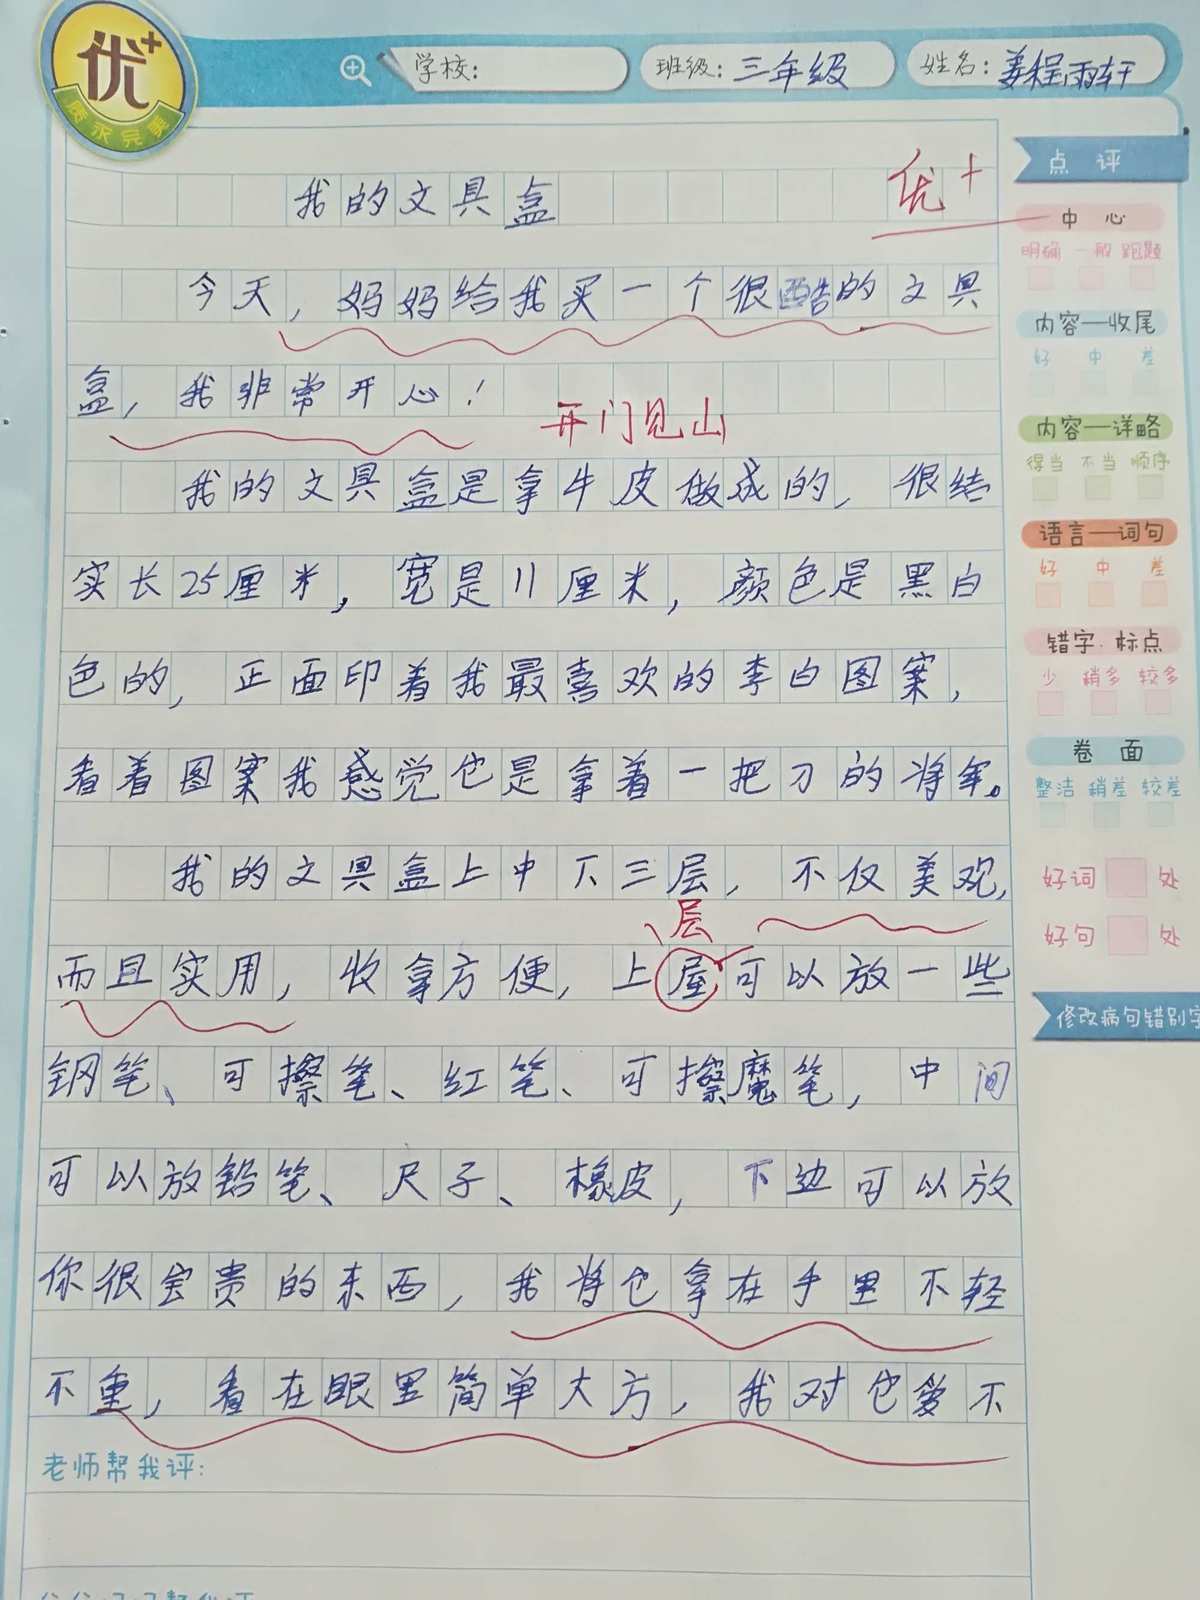 优+
质量完美
学校:
班级: 三年级
姓名: 姜程雨轩
我的文具盒
优+
今天,妈妈给我买一个很酷的文具
盒,我非常开心!
开门见山
我的文具盒是拿牛皮做成的,很结
实长25厘米,宽是11厘米,颜色是黑白
色的,正面印着我最喜欢的李白图案,
看着图案我感觉它是拿着一把刀的将军。
我的文具盒上中下三层,不仅美观,
层
而且实用,收拿方便,上屋可以放一些
钢笔、可擦笔、红笔、可擦魔笔,中间
可以放铅笔、尺子、橡皮,下边可以放
你很宝贵的东西,我将它拿在手里不轻
不重,看在眼里简单大方,我对它爱不
老师帮我评:
点评
中心
明确 一般 跑题
内容—收尾
好 中 差
内容—详略
得当 不当 顺序
语言—词句
好 中 差
错字·标点
少 稍多 较多
卷面
整洁 稍差 较差
好词 处
好句 处
修改病句错别字